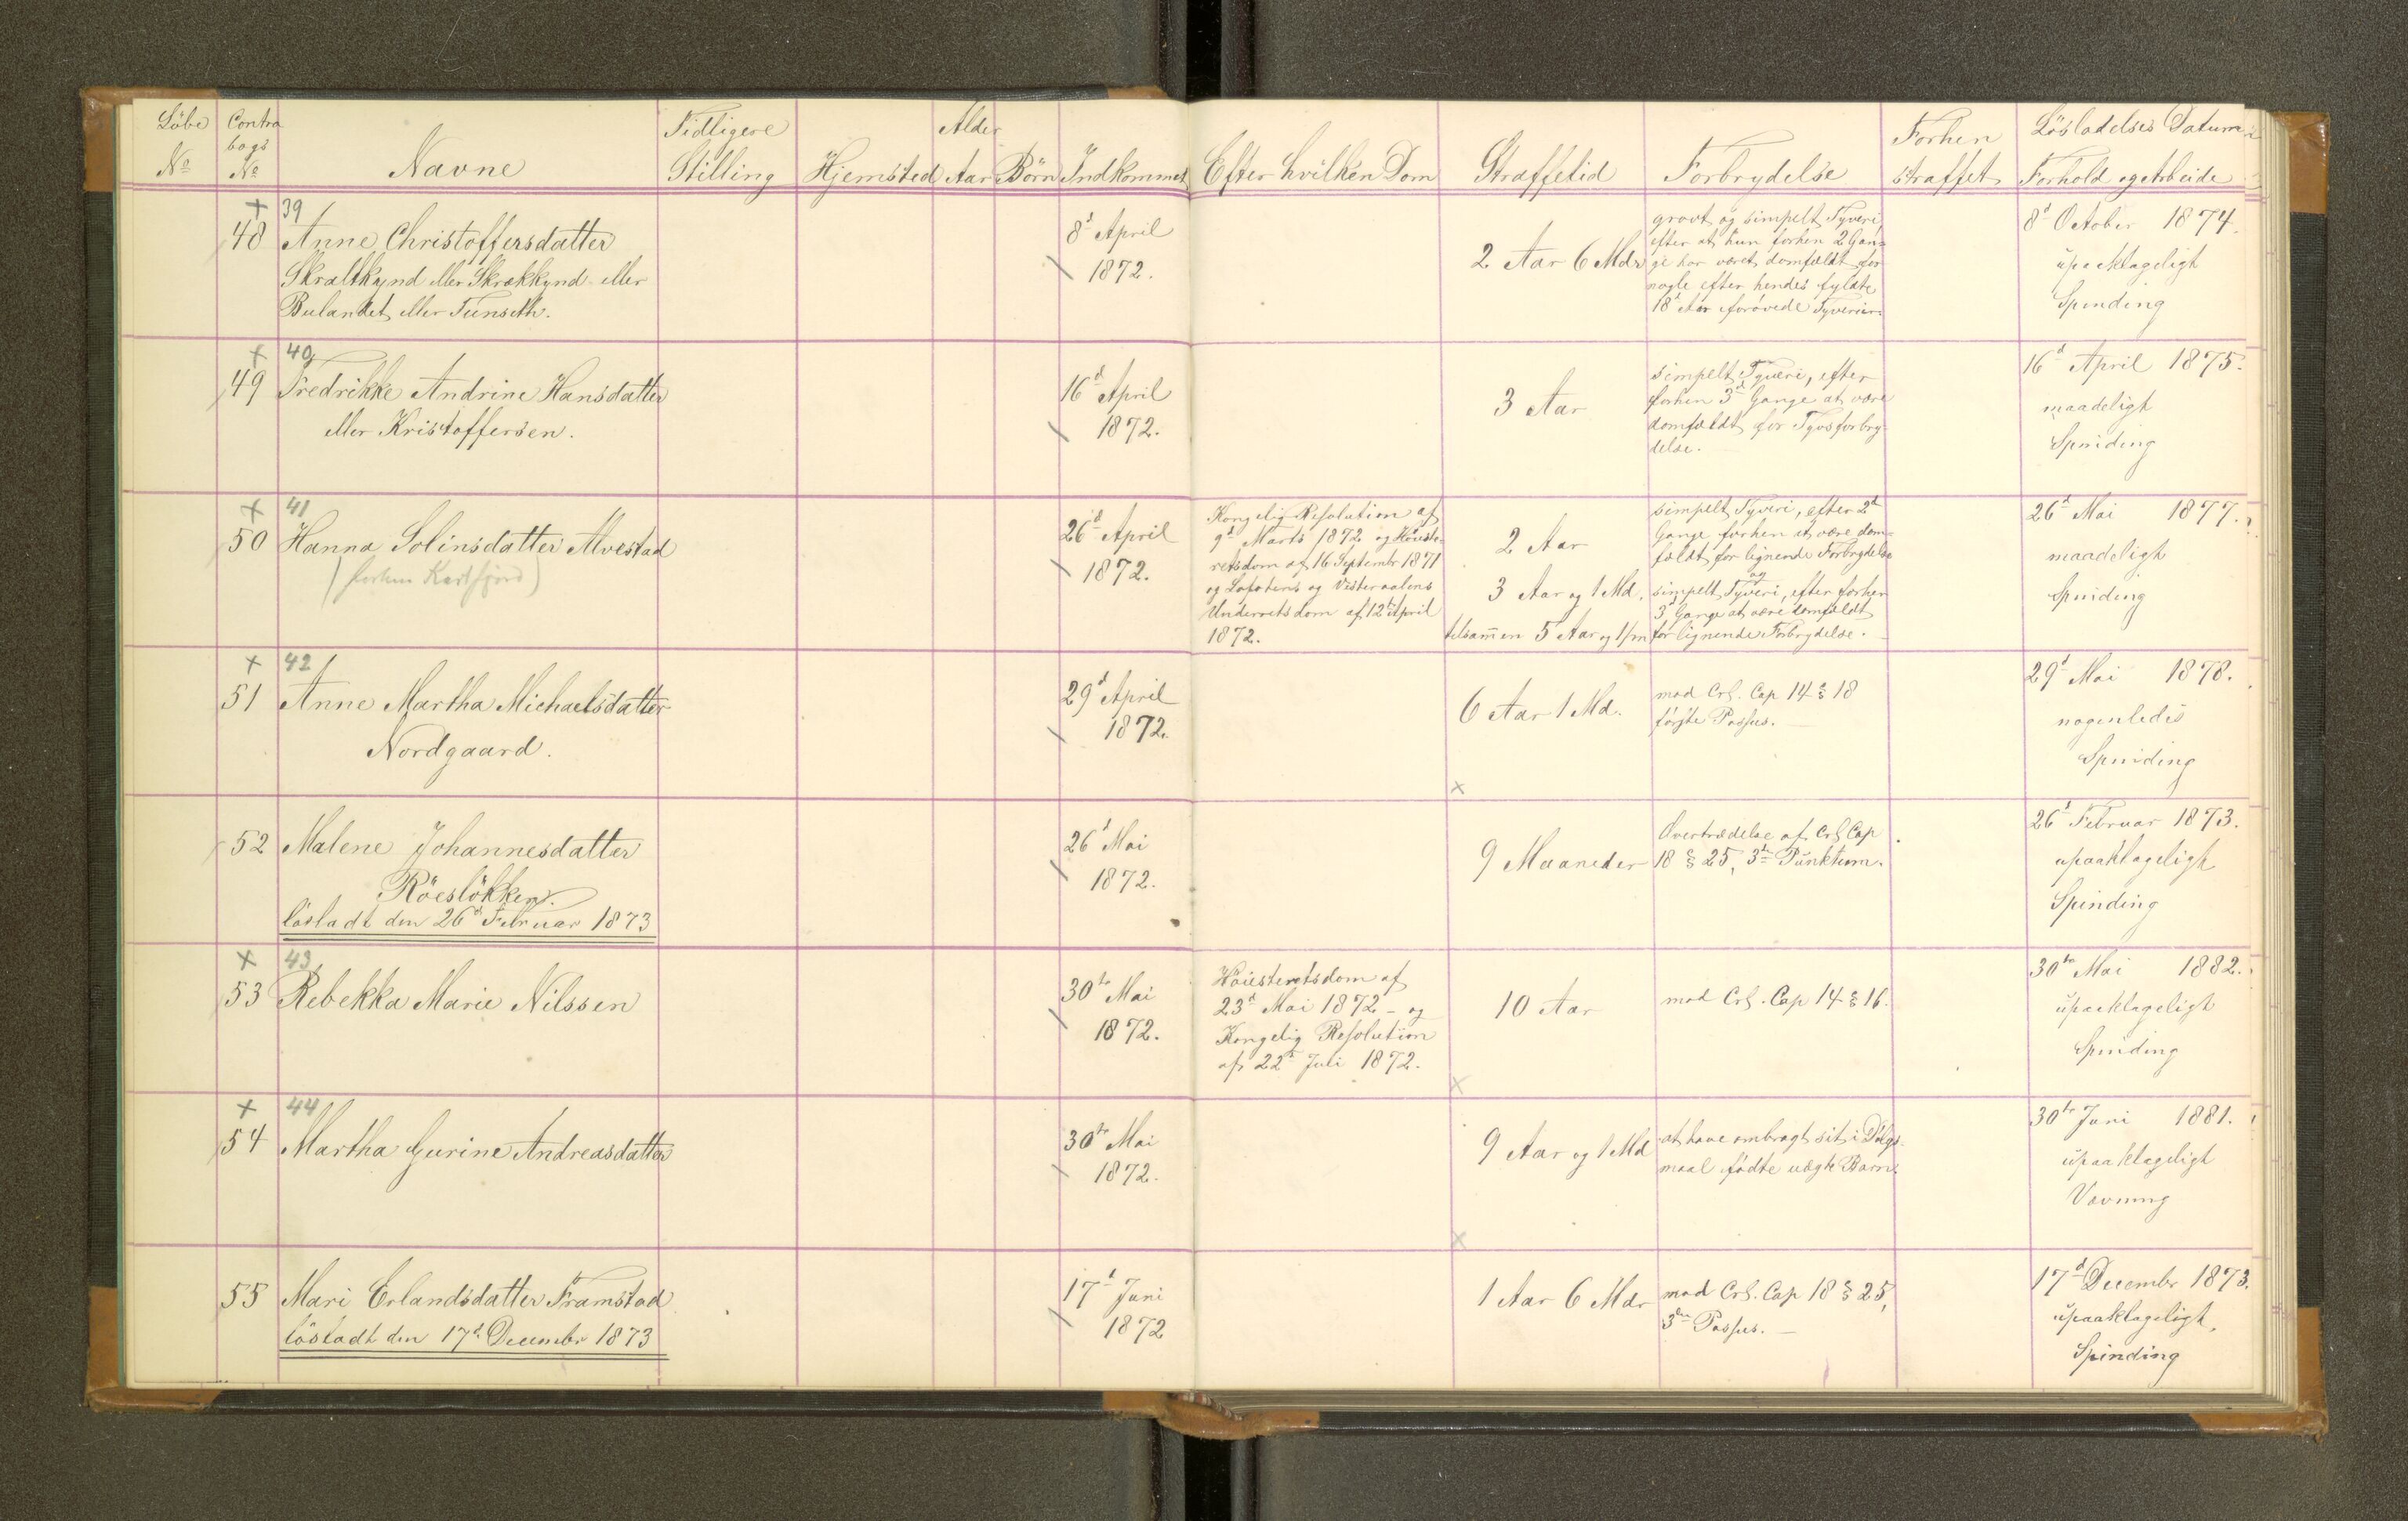 Löbe Contra Tidligere Alder Forhen Lösladelses Datum
bogs
No No Navne Stilling Hjemsted Aar Börn Indkommet Efter hvilken Dom Straffetid Forbrydelse straffet Forhold og Arbeide
+ 39
48 Anne Christoffersdatter
Skraltkynd eller Skrækkynd eller
Bulandet eller Tunseth.
8d April
1872.
2 Aar 6 Mdr
grovt og simpelt Tyveri,
efter at hun forhen 2 Gan-
ge har været domfældt for
nogle efter hendes fyldte
18d Aar forövede Tyverier.
8d October 1874.
upaaklageligt
Spinding
+ 40
49 Fredrikke Andrine Hansdatter
eller Kristoffersen.
16d April
1872.
3 Aar
simpelt Tyveri, efter
forhen 3d Gange at være
domfældt for Tyvsforbry-
delse.
16d April 1875.
maadeligt
Spinding
+ 41
50 Hanna Solinsdatter Alvestad
(forhen Kartfjord)
26d April
1872.
Kongelig Resolution af
9d Marts 1872 og Höieste-
retsdom af 16 Septembr 1871
og Lofotens og Vesteraalens
Underretsdom af 12te April
1872.
2 Aar
3 Aar og 1 Md.
tilsammen 5 Aar og 1/m
simpelt Tyveri, efter 2d
Gange forhen at være dom-
fældt for lignende Forbrydelse
og
simpelt Tyveri, efter forhen
3d Gange at være domfældt
for lignende Forbrydelse.
26d Mai 1877.
maadeligt
Spinding
+ 42
51 Anne Martha Michaelsdatter
Nordgaard.
29d April
1872.
6 Aar 1 Md.
mod Crl. Cap 14 § 18
förste Passus.
29d Mai 1878.
nogenledes
Spinding
x
52 Malene Johannesdatter
Röeslökken.
lösladt den 26d Februar 1873
26d Mai
1872.
9 Maaneder
Overtrædelse af Crl Cap
18 § 25, 3die Punktum.
26d Februar 1873.
upaaklageligt
Spinding
+ 43
53 Rebekka Marie Nilssen
30te Mai
1872.
Höiesteretsdom af
23d Mai 1872 - og
Kongelig Resolution
af 22d Juli 1872.
10 Aar
mod Crl. Cap 14 § 16.
30te Mai 1882.
upaaklageligt
Spinding
x
+ 44
54 Martha Gurine Andreasdatter
30te Mai
1872.
9 Aar og 1 Md
at have ombragt sit i Dölgs-
maal födte uægte Barn.
30te Juni 1881.
upaaklageligt
Vævning
x
55 Mari Erlandsdatter Framstad
lösladt den 17d Decembr 1873
17d Juni
1872
1 Aar 6 Mdr
mod Crl. Cap 18 § 25,
3die Passus.
17d Decembr 1873.
upaaklageligt,
Spinding